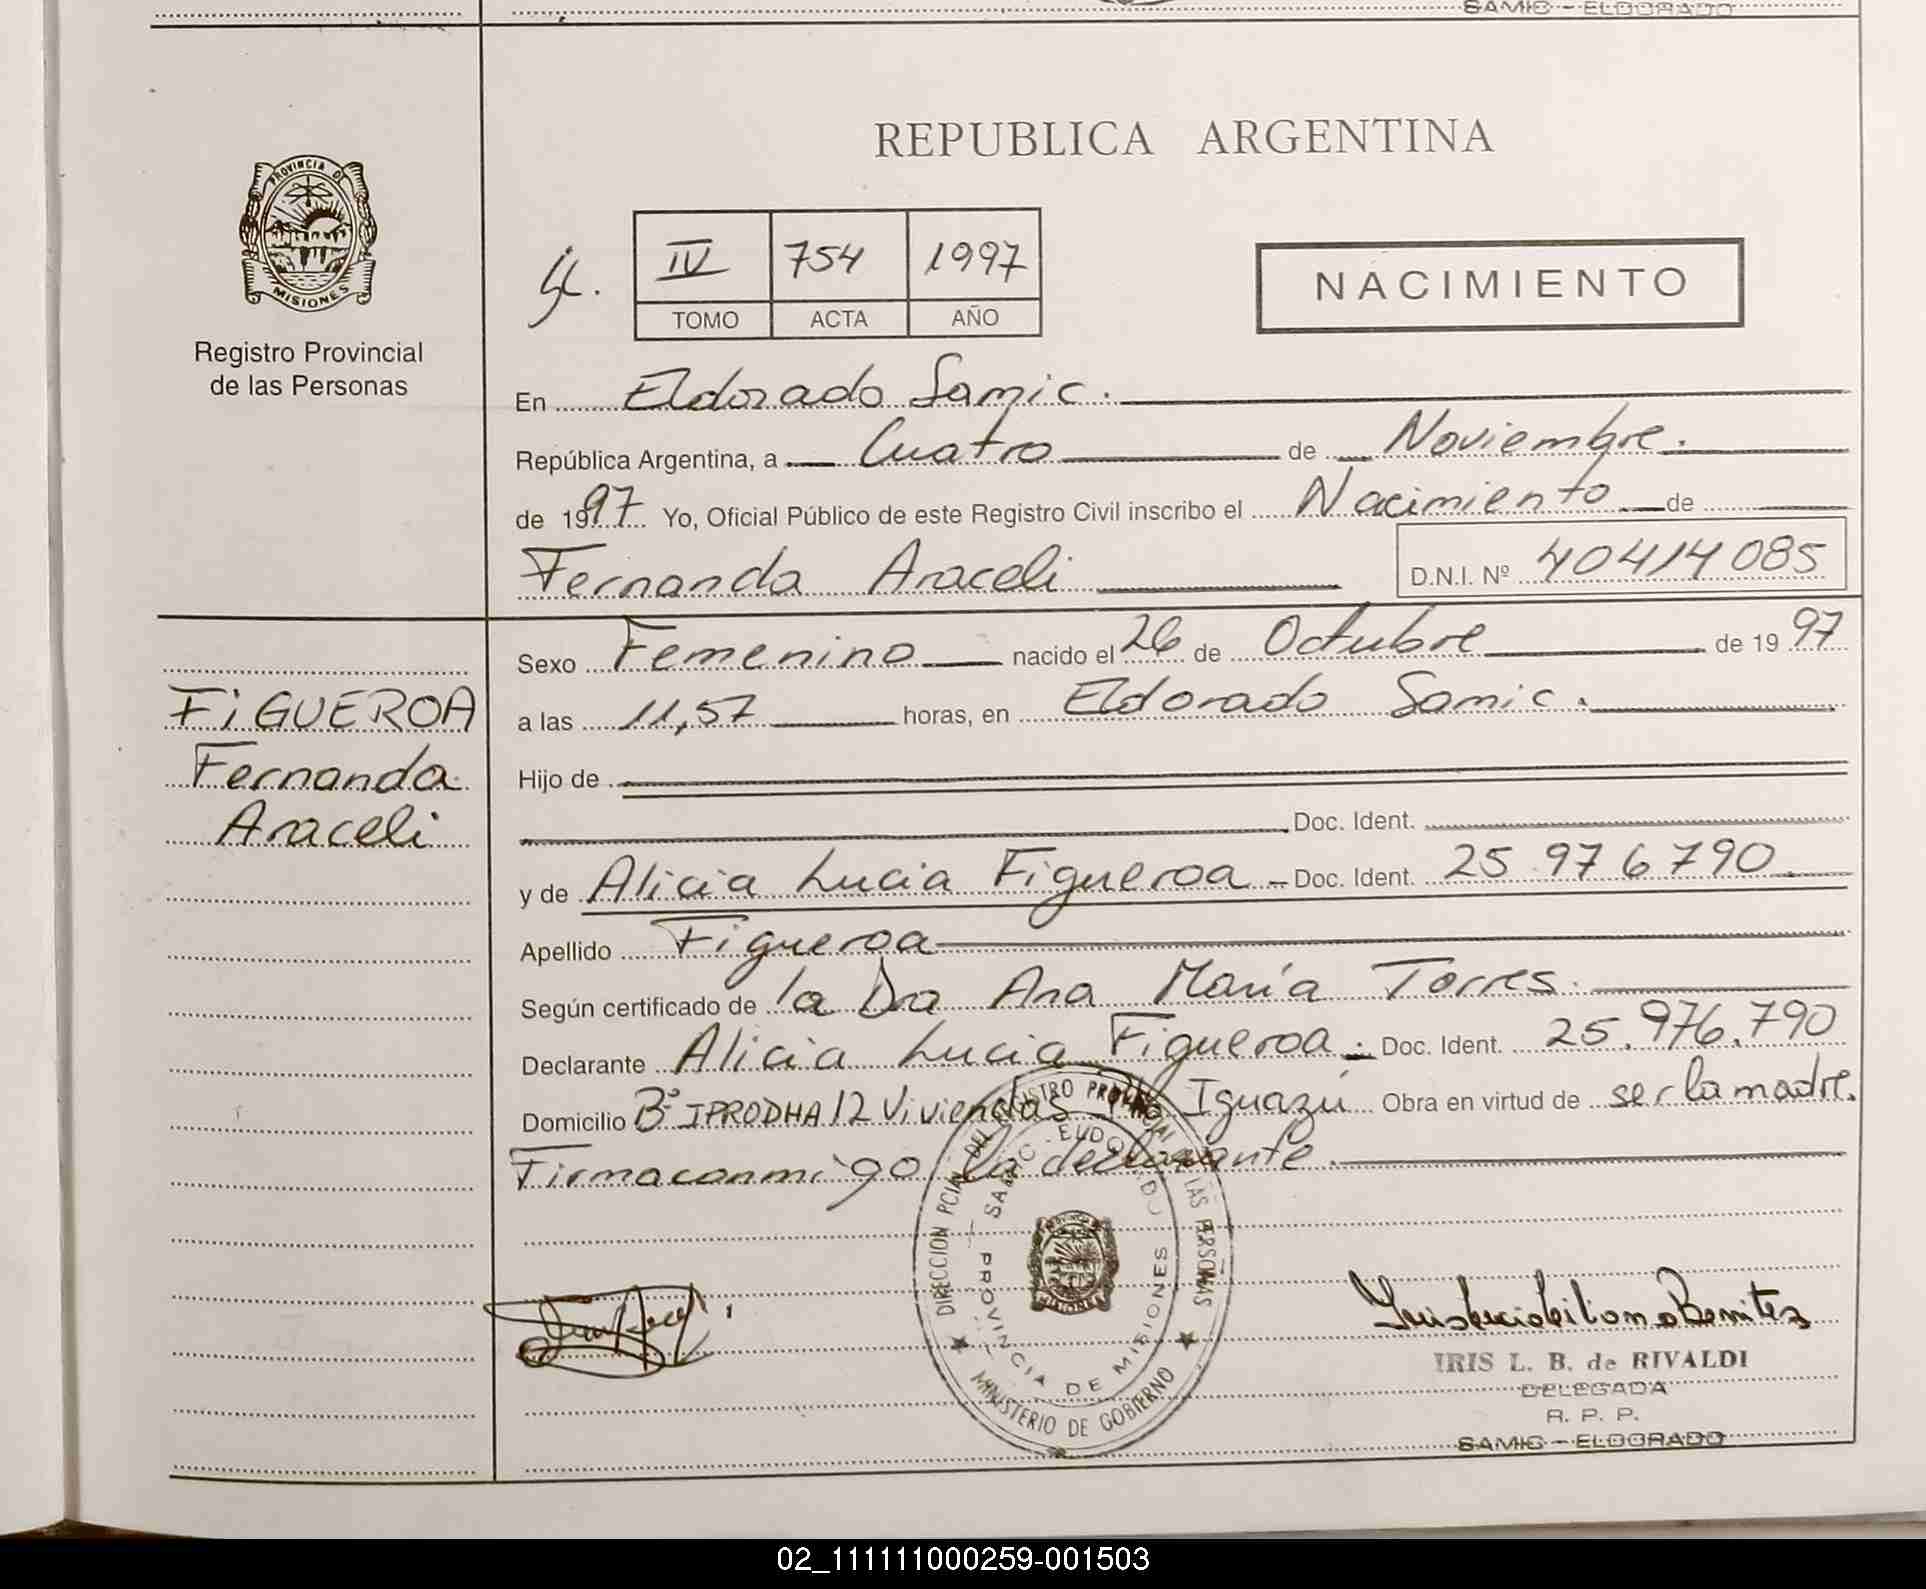 SAMIC - ELDORADO
REPUBLICA ARGENTINA
PROVINCIA DE
MISIONES
Registro Provincial
de las Personas
IV 754 1997
TOMO ACTA AÑO
NACIMIENTO
En Eldorado Samic.
República Argentina, a Cuatro de Noviembre.
de 1997 Yo, Oficial Público de este Registro Civil inscribo el Nacimiento de
Fernanda Araceli D.N.I. Nº 40414085
Sexo Femenino nacido el 26 de Octubre de 1997
a las 11,57 horas, en Eldorado Samic.
FiGUEROA
Fernanda
Araceli
Hijo de
Doc. Ident.
y de Alicia Lucia Figueroa - Doc. Ident. 25 976790
Apellido Figueroa
Según certificado de la Dra Ana María Torres.
Declarante Alicia Lucia Figueroa. Doc. Ident. 25.976.790
Domicilio Bº IPRODHA 12 Viviendas Iguazú Obra en virtud de ser la madre.
Firma conmigo la declarante.
DIRECCION PCIAL DEL REGISTRO PROVINCIAL DE LAS PERSONAS
SAMIC - ELDORADO
PROVINCIA DE MISIONES
MINISTERIO DE GOBIERNO
IRIS L. B. de RIVALDI
DELEGADA
R. P. P.
SAMIC - ELDORADO
02_111111000259-001503